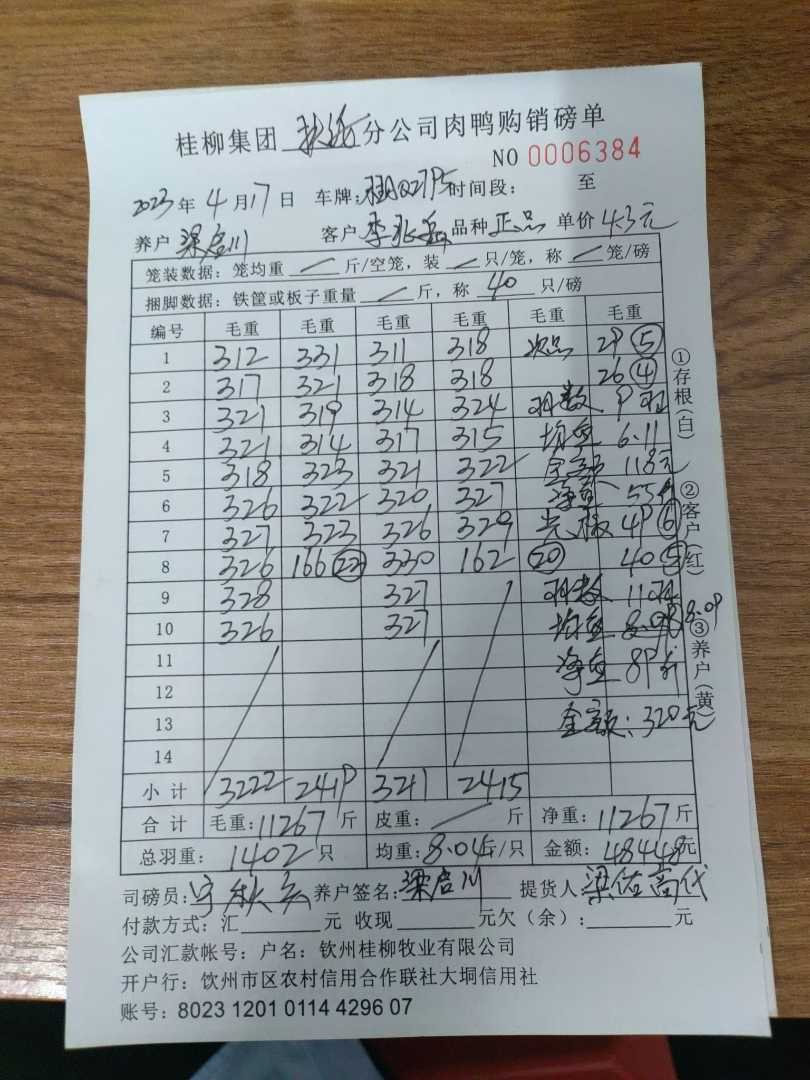 桂柳集团 分公司肉鸭购销磅单
NO 0006384
2023年4月17日 车牌: 时间段: 至
养户 梁启川 客户 李 品种 正品 单价 4.3元
笼装数据:笼均重 / 斤/空笼,装 / 只/笼,称 / 笼/磅
捆脚数据:铁筐或板子重量 / 斤,称 40 只/磅
编号 毛重 毛重 毛重 毛重 毛重 毛重
1 312 331 311 318 次品 29 ⑤
2 317 321 318 318 26 ④
3 321 319 314 324 羽数 9羽
4 321 314 317 315 均重 6.11
5 318 323 321 322 金额 118元
6 326 322 320 327 净重 55斤
7 327 323 326 329 光板 49 ⑥
8 326 166 ㉒ 330 162 ⑳ 40 ⑤
9 328 327 羽数 11羽
10 326 327 均重 8.09
11 净重 89斤
12
13 金额:320元
14
小计 3222 2419 3211 2415
合计 毛重:11267斤 皮重: / 斤 净重:11267斤
总羽重: 1402 只 均重:8.04斤/只 金额:48448元
司磅员: 养户签名:梁启川 提货人 梁佑高代
付款方式:汇 元 收现 元欠(余): 元
公司汇款帐号:户名:钦州桂柳牧业有限公司
开户行:饮州市区农村信用合作联社大垌信用社
账号:8023 1201 0114 4296 07
①存根(白)
②客户(红)
③养户(黄)